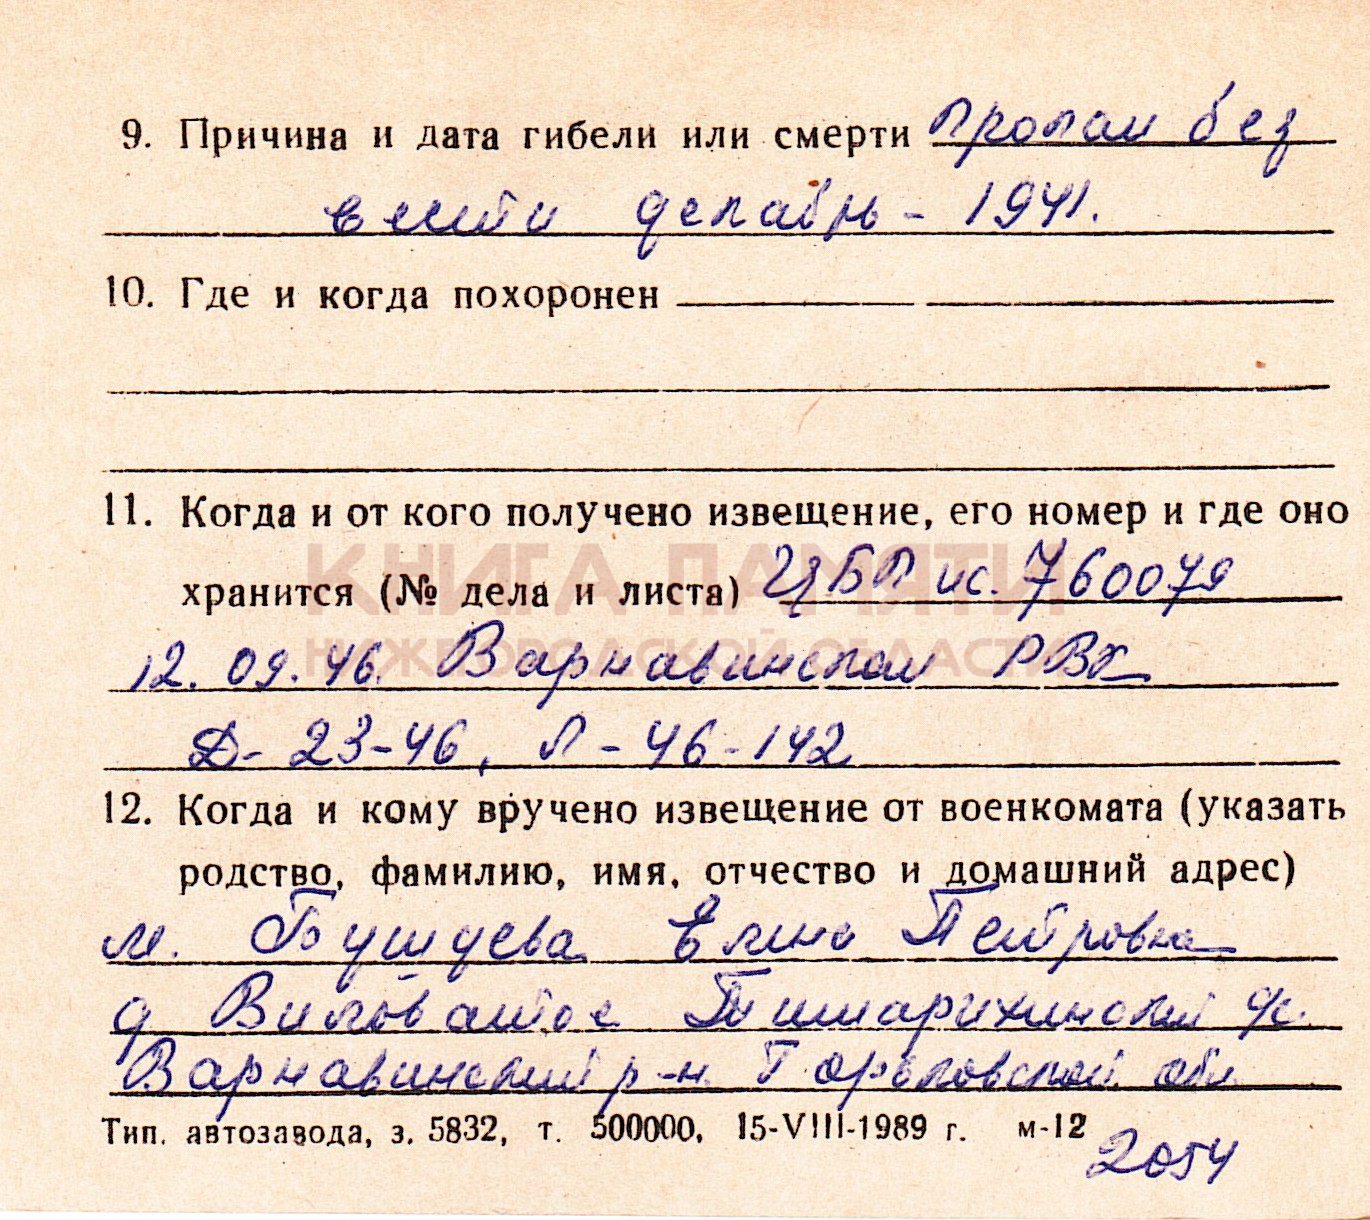 9. Причина и дата гибели или смерти пропал без
вести декабрь - 1941.
10. Где и когда похоронен
11. Когда и от кого получено извещение, его номер и где оно
КНИГА ПАМЯТИ
хранится (№ дела и листа) ЦБП ис. 760079
НИЖЕГОРОДСКОЙ ОБЛАСТИ
12.09.46. Варнавинском РВК
Д- 23-46, Л - 46-142
12. Когда и кому вручено извещение от военкомата (указать
родство, фамилию, имя, отчество и домашний адрес)
м. Бушуева Петровна
д Виловатое с.
Варнавинский р-н Горьковской обл
Тип. автозавода, з. 5832, т. 500000, 15-VIII-1989 г. м-12
2054